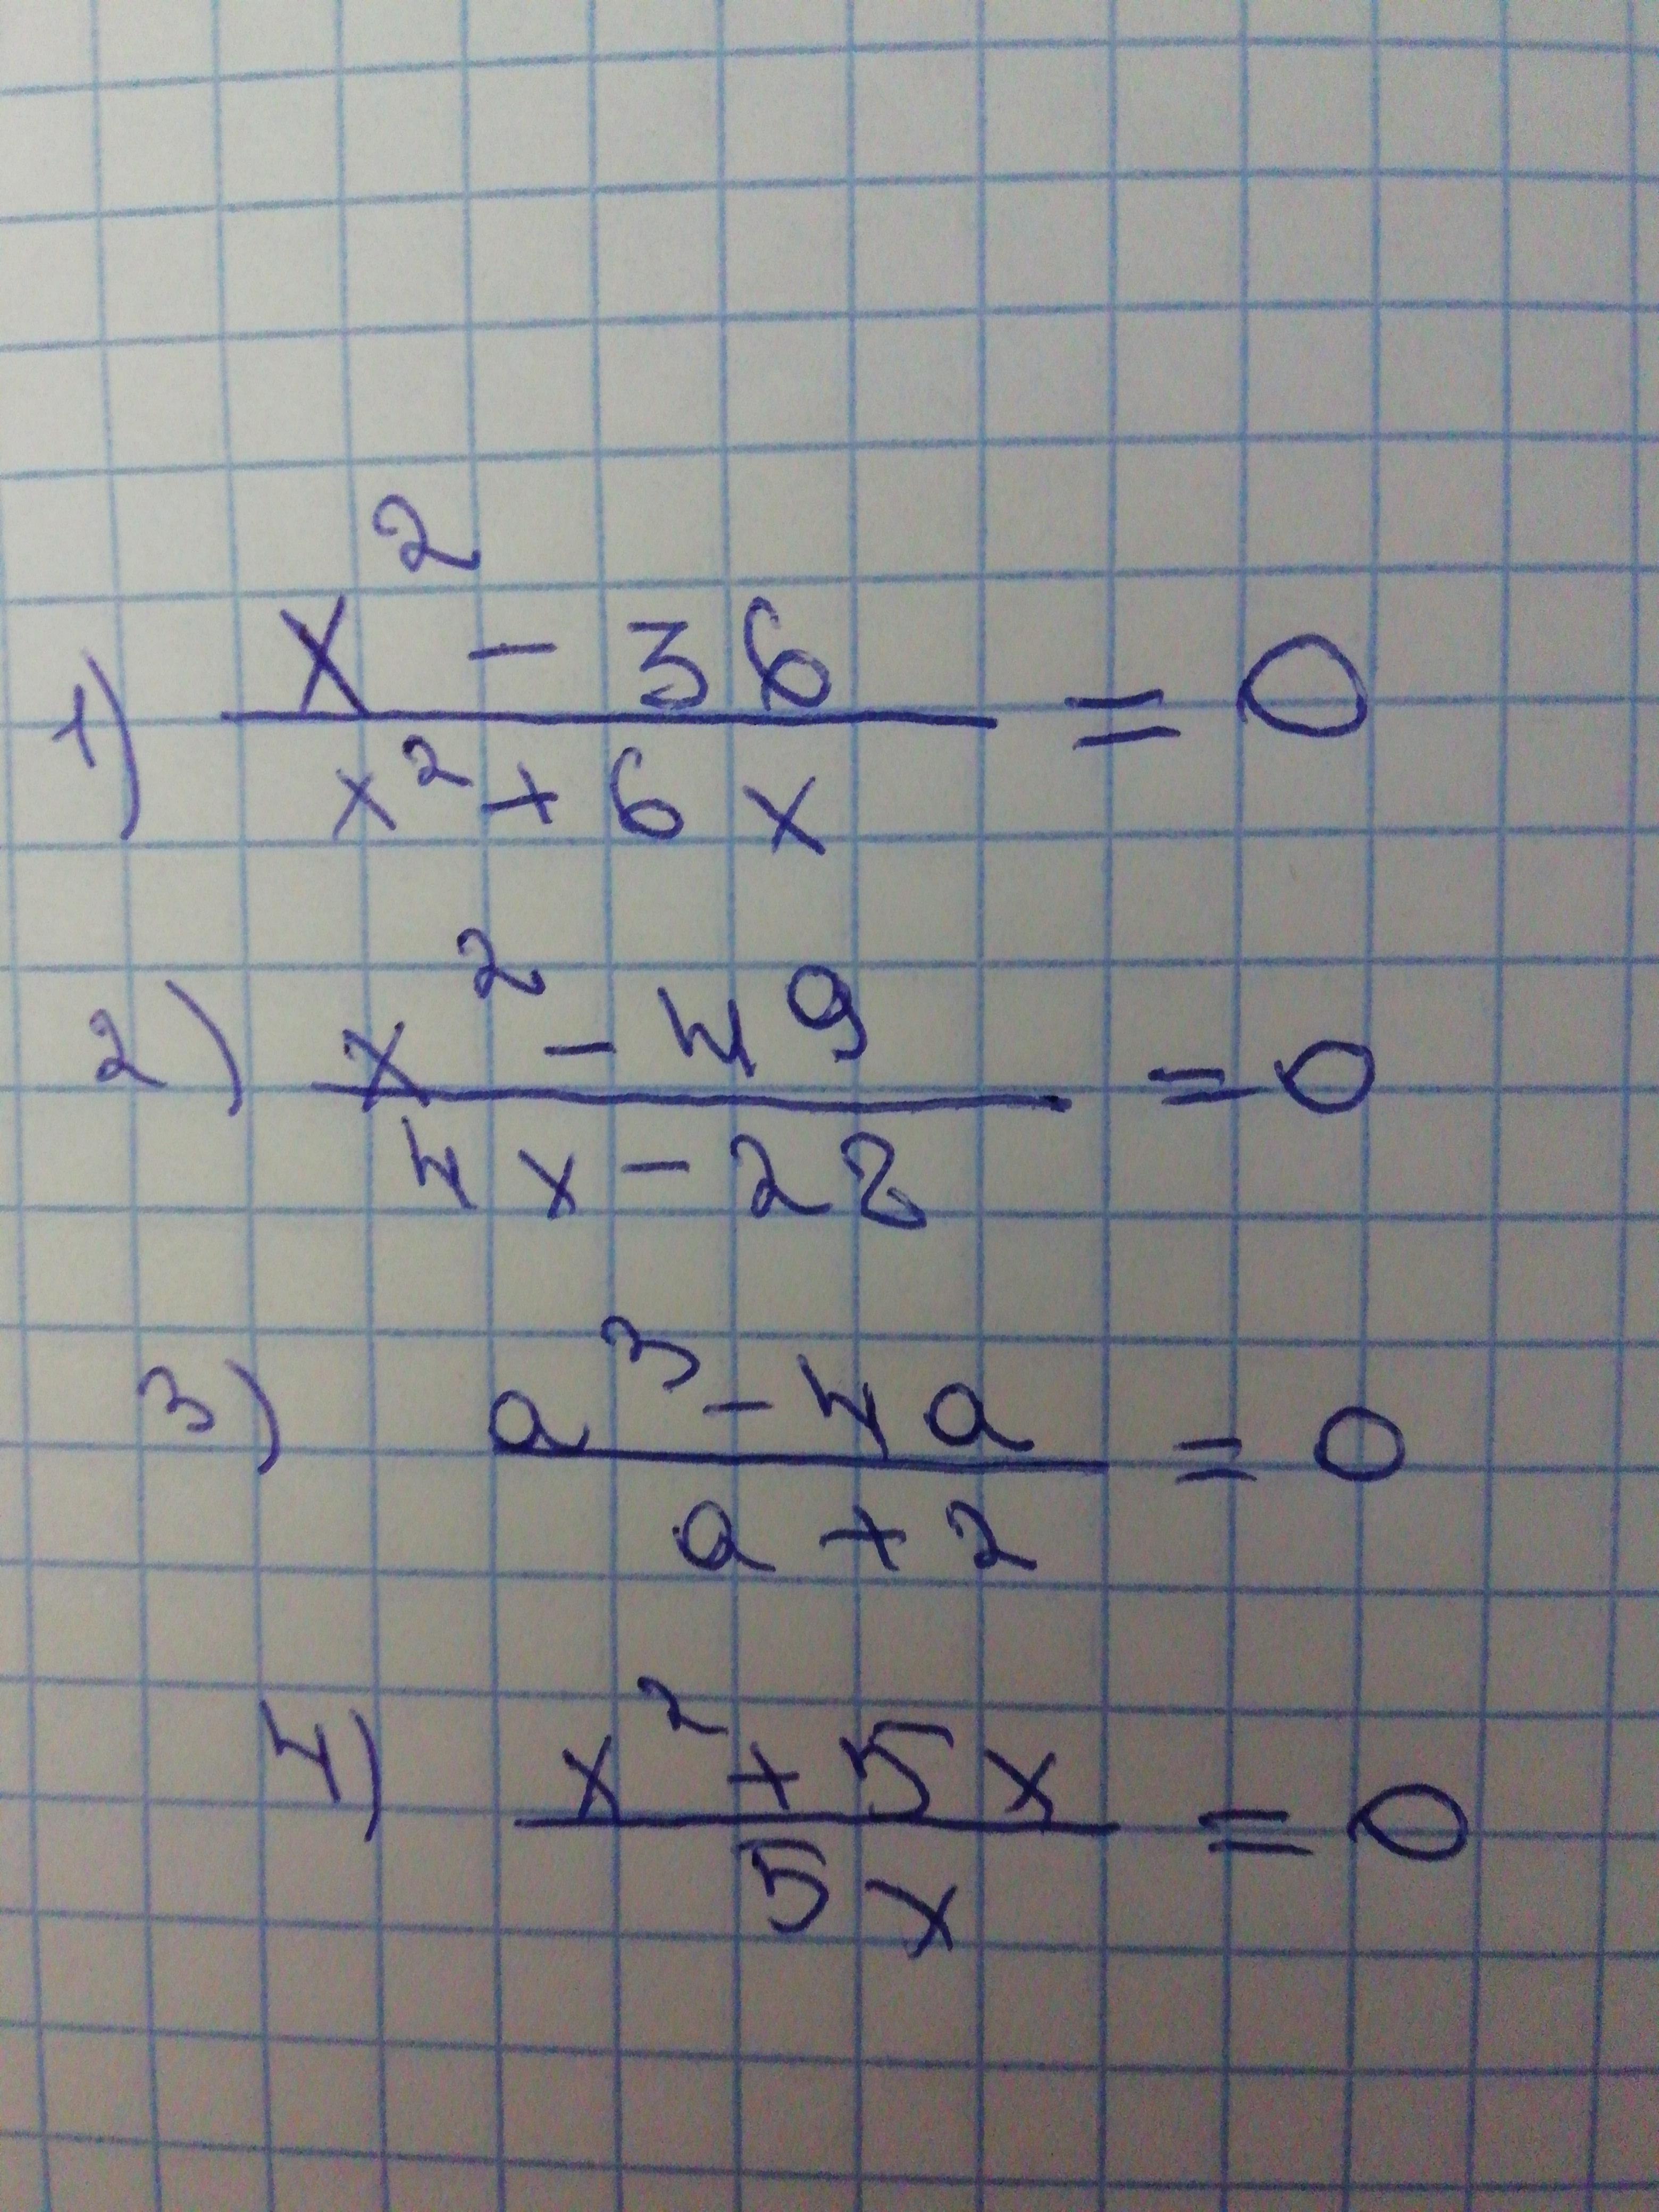 1) (x² - 36)/(x² + 6x) = 0
2) (x² - 49)/(4x - 28) = 0
3) (a³ - 4a)/(a + 2) = 0
4) (x² + 5x)/(5x) = 0